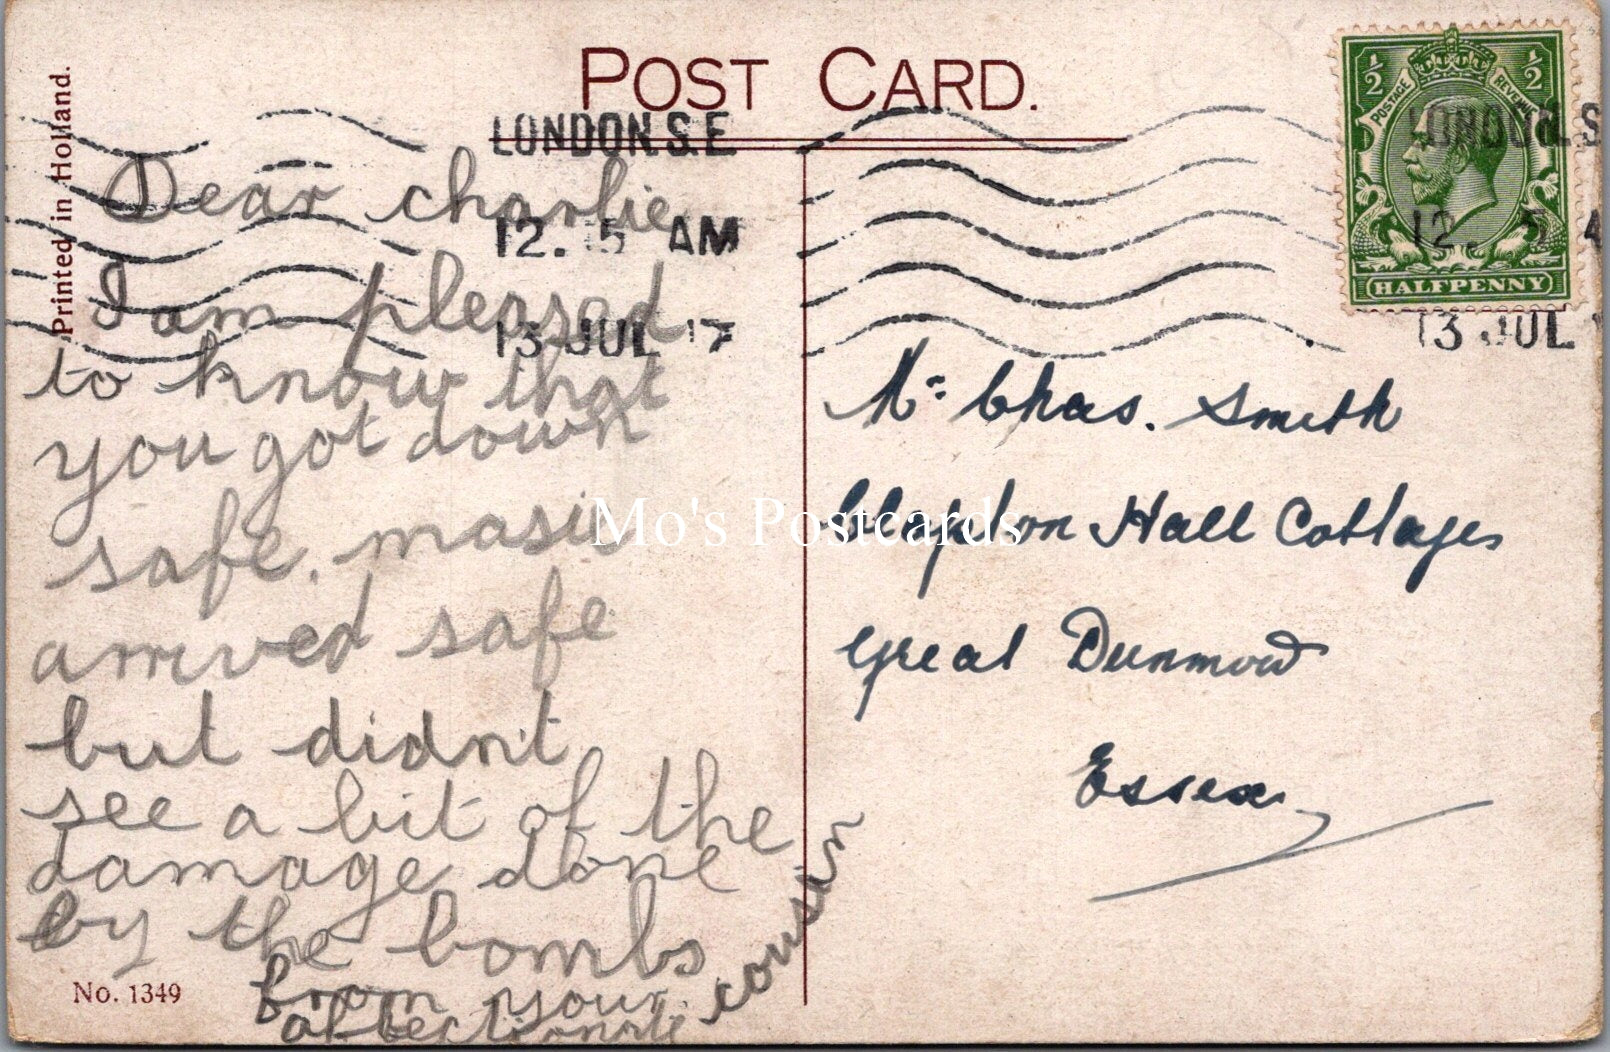 POST CARD.
Printed in Holland.
LONDON. S.E
12. 15 AM
13 JUL 17
½ ½
POSTAGE REVENUE
HALFPENNY
LONDON. S
12.
13 JUL
Dear Charlie
I am pleased
to know that
you got down
safe. masie
arrived safe
but didn't
see a bit of the
damage done
by the bombs
from your
affectionate cousin
No. 1349
Mr Chas. Smith
Clapton Hall Cottages
Great Dunmow
Essex
Mo's Postcards